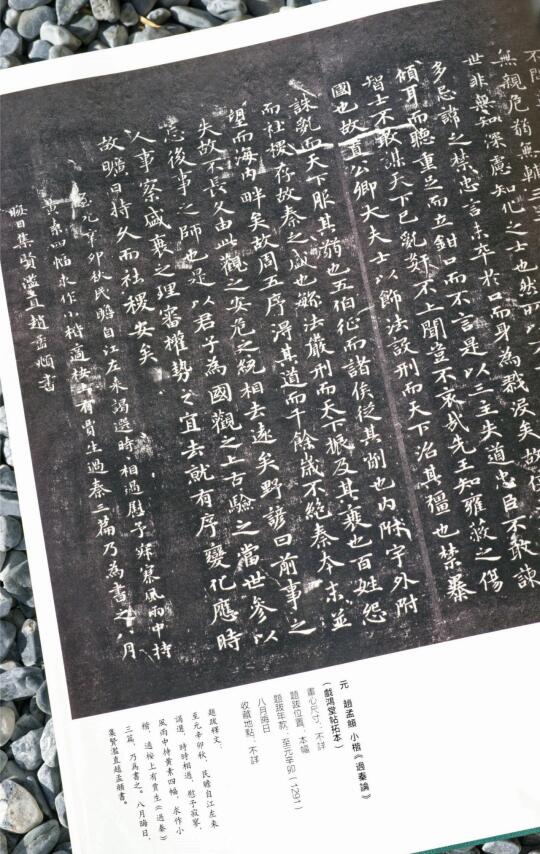 不問
無親危弱無輔三
世非無知深慮知化之士也然可以
多忌諱之禁忠言未卒於口而身為戮沒矣故使
傾耳而聽重足而立鉗口而不言是以三主失道忠臣不敢諫
智士不敢謀天下已亂奸不上聞豈不哀哉先王知雍蔽之傷
國也故置公卿大夫士以飾法設刑而天下治其彊也禁暴
誅亂而天下服其弱也五伯征而諸侯從其削也內守外附
而社稷存故秦之盛也繁法嚴刑而天下振及其衰也百姓怨
望而海內畔矣故周五序得其道而千餘歲不絕秦本末並
失故不長久由此觀之安危之統相去遠矣野諺曰前事之
忘後事之師也是以君子為國觀之上古驗之當世參以
人事察盛衰之理審權勢之宜去就有序變化應時
故曠日持久而社稷安矣
至元辛卯秋民瞻自江左來謁選時相過慰予寂寥風雨中持
黃素四幅求作小楷適桉上有賈生過秦三篇乃為書之八月
晦日集賢濫直趙孟頫書
元　趙孟頫　小楷《過秦論》
（戲鴻堂帖拓本）
畫心尺寸：不詳
題跋位置：本幅
題跋年款：至元辛卯（1291）
八月晦日
收藏地點：不詳
題跋釋文：
至元辛卯秋，民瞻自江左來
謁選，時時相過，慰予寂寥，
風雨中持黃素四幅，求作小
楷，適桉上有賈生《過秦》
三篇，乃為書之。八月晦日，
集賢濫直趙孟頫書。